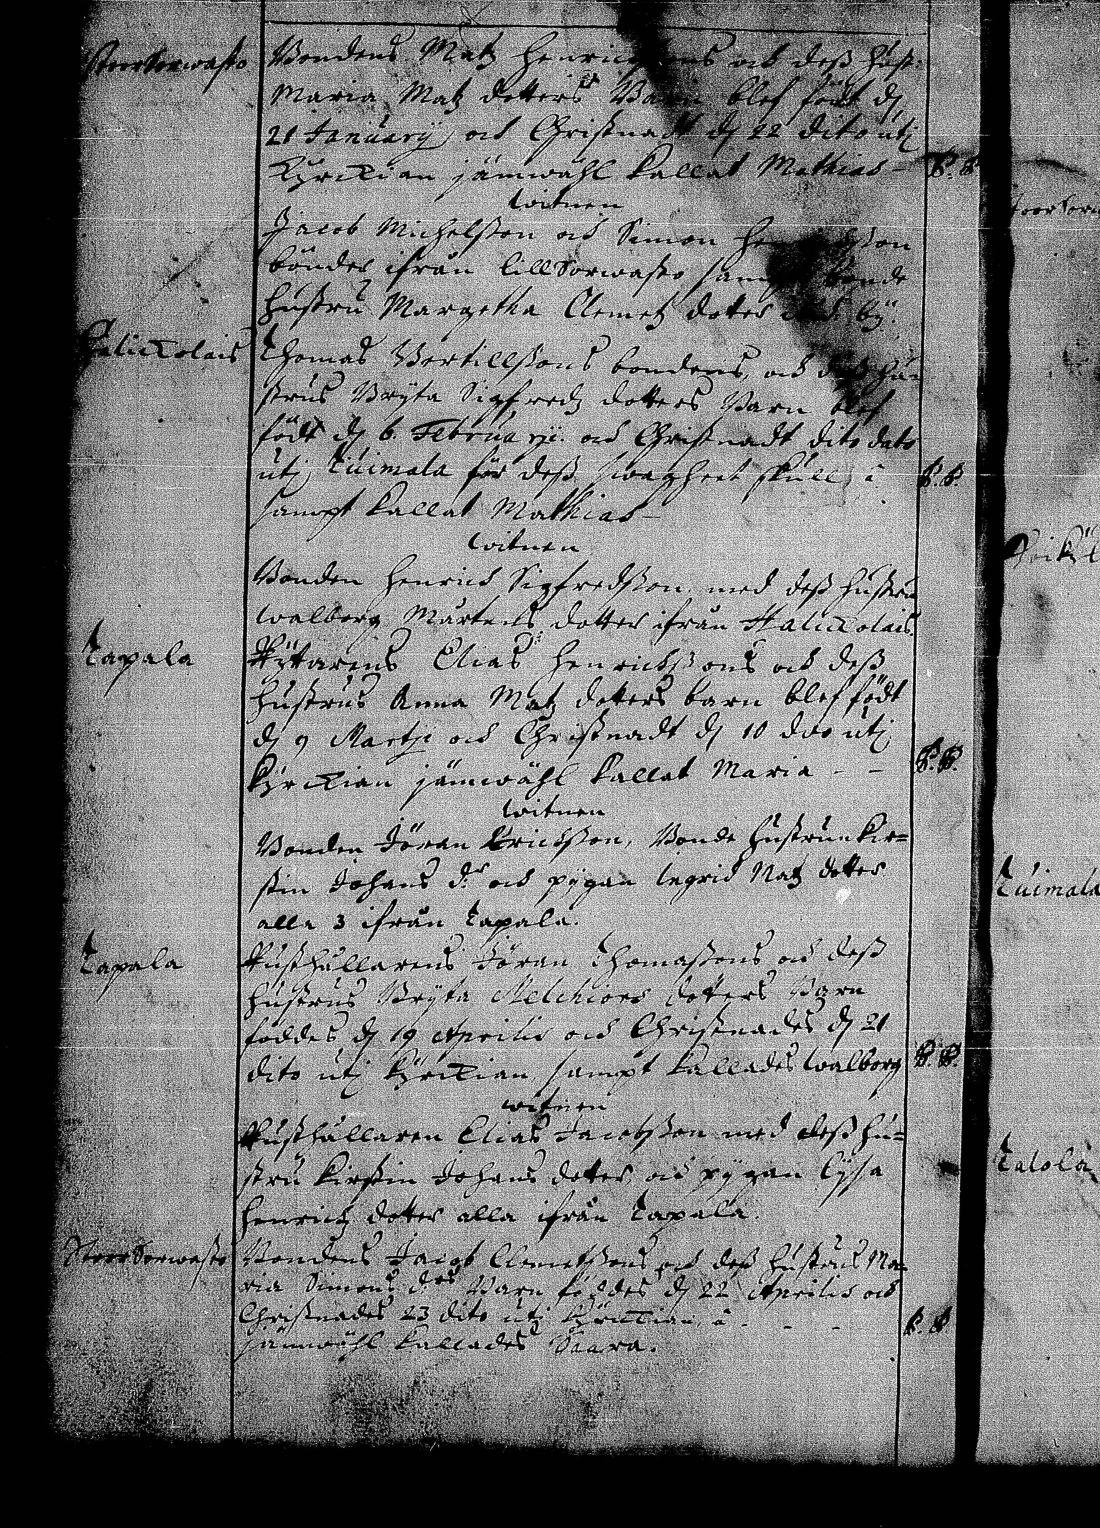 StoorSorwasto
Bondens Matz Henrichssons och dess Hust:
Maria Matz dotters Barn blef födt d
21 Januarij och Christnadt d 22 dito utj
Kyrckian jämwähl kallat Mathias –
witnen
Jacob Michelsson och Simon
bönder ifrån LillSorwasto sampt bonde
hustru Margetha Clemetz dotter by.
Halickolais
Thomas Bertillssons bondens, och dess hu-
strus Bryta Sigfredz dotters Barn blef
födt d 6 Februarij. och Christnadt dito dato
utj Tuimala för dess swagheet skull, i
sampt kallat Mathias –
witnen
Bonden Henrich Sigfredsson med dess hustru
Walborg Mårtens dotter ifrån Halickolais.
Tapala
Ryttarens Elias Henrichssons och dess
hustrus Anna Matz dotters barn blef födt
d 9 Martji och Christnadt d 10 dito utj
Kyrckian jämwähl kallat Maria – –
witnen
Bonden Jöran Erichsson, Bonde Hustrun Kir=
stin Johans dr och pygan Ingrid Matz dotter
alla 3 ifrån Tapala.
Tapala
Rusthållarens Jöran Thomassons och dess
hustrus Bryta Melchiors dotters Barn
föddes d 19 Aprilis och Christnades d 21
dito utj Kyrckian sampt kallades Walborg
witnen
Rusthållaren Elias Jacobsson med dess hu=
stru Kirstin Johans dotter och pygan Lysa
Henrichz dotter alla ifrån Tapala.
StoorSorwasto
Bondens Jacob Clemetssons och dess hustrus Ma-
ria Simons drs Barn föddes d 22 Aprilis och
Christnades 23 dito utj Kyrckian, i – – –
jämwähl kallades Saara.
Tuimala
Talola